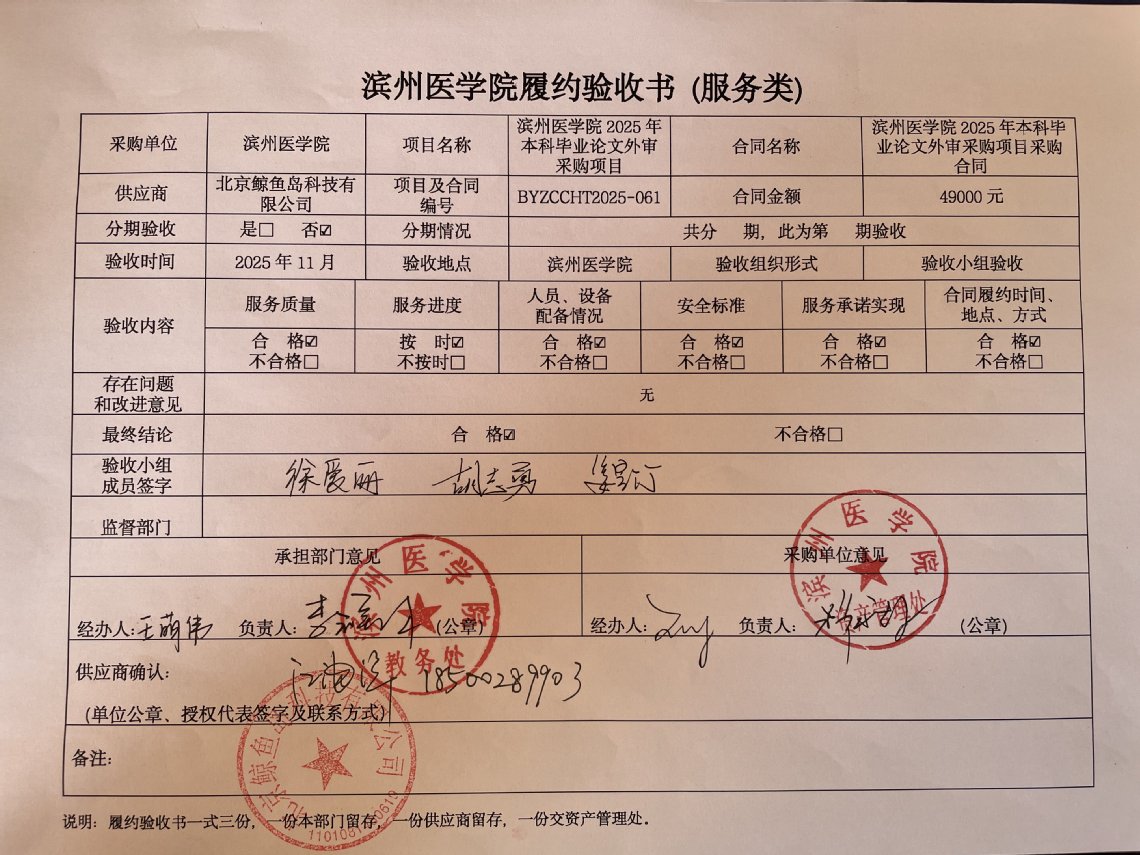 滨州医学院履约验收书 (服务类)
采购单位
滨州医学院
项目名称
滨州医学院 2025 年
本科毕业论文外审
采购项目
合同名称
滨州医学院 2025 年本科毕
业论文外审采购项目采购
合同
供应商
北京鲸鱼岛科技有
限公司
项目及合同
编号
BYZCCHT2025-061
合同金额
49000 元
分期验收
是☐ 否☑
分期情况
共分 期，此为第 期验收
验收时间
2025 年 11 月
验收地点
滨州医学院
验收组织形式
验收小组验收
验收内容
服务质量
服务进度
人员、设备
配备情况
安全标准
服务承诺实现
合同履约时间、
地点、方式
合 格☑
不合格☐
按 时☑
不按时☐
合 格☑
不合格☐
合 格☑
不合格☐
合 格☑
不合格☐
合 格☑
不合格☐
存在问题
和改进意见
无
最终结论
合 格☑
不合格☐
验收小组
成员签字
徐爱丽 胡志勇
监督部门
承担部门意见
采购单位意见
经办人:王萌伟 负责人: (公章)
滨州医学院
教务处
经办人: 负责人: (公章)
滨州医学院
资产管理处
供应商确认:
18500289903
(单位公章、授权代表签字及联系方式)
北京鲸鱼岛科技有限公司
备注:
说明: 履约验收书一式三份，一份本部门留存，一份供应商留存，一份交资产管理处。